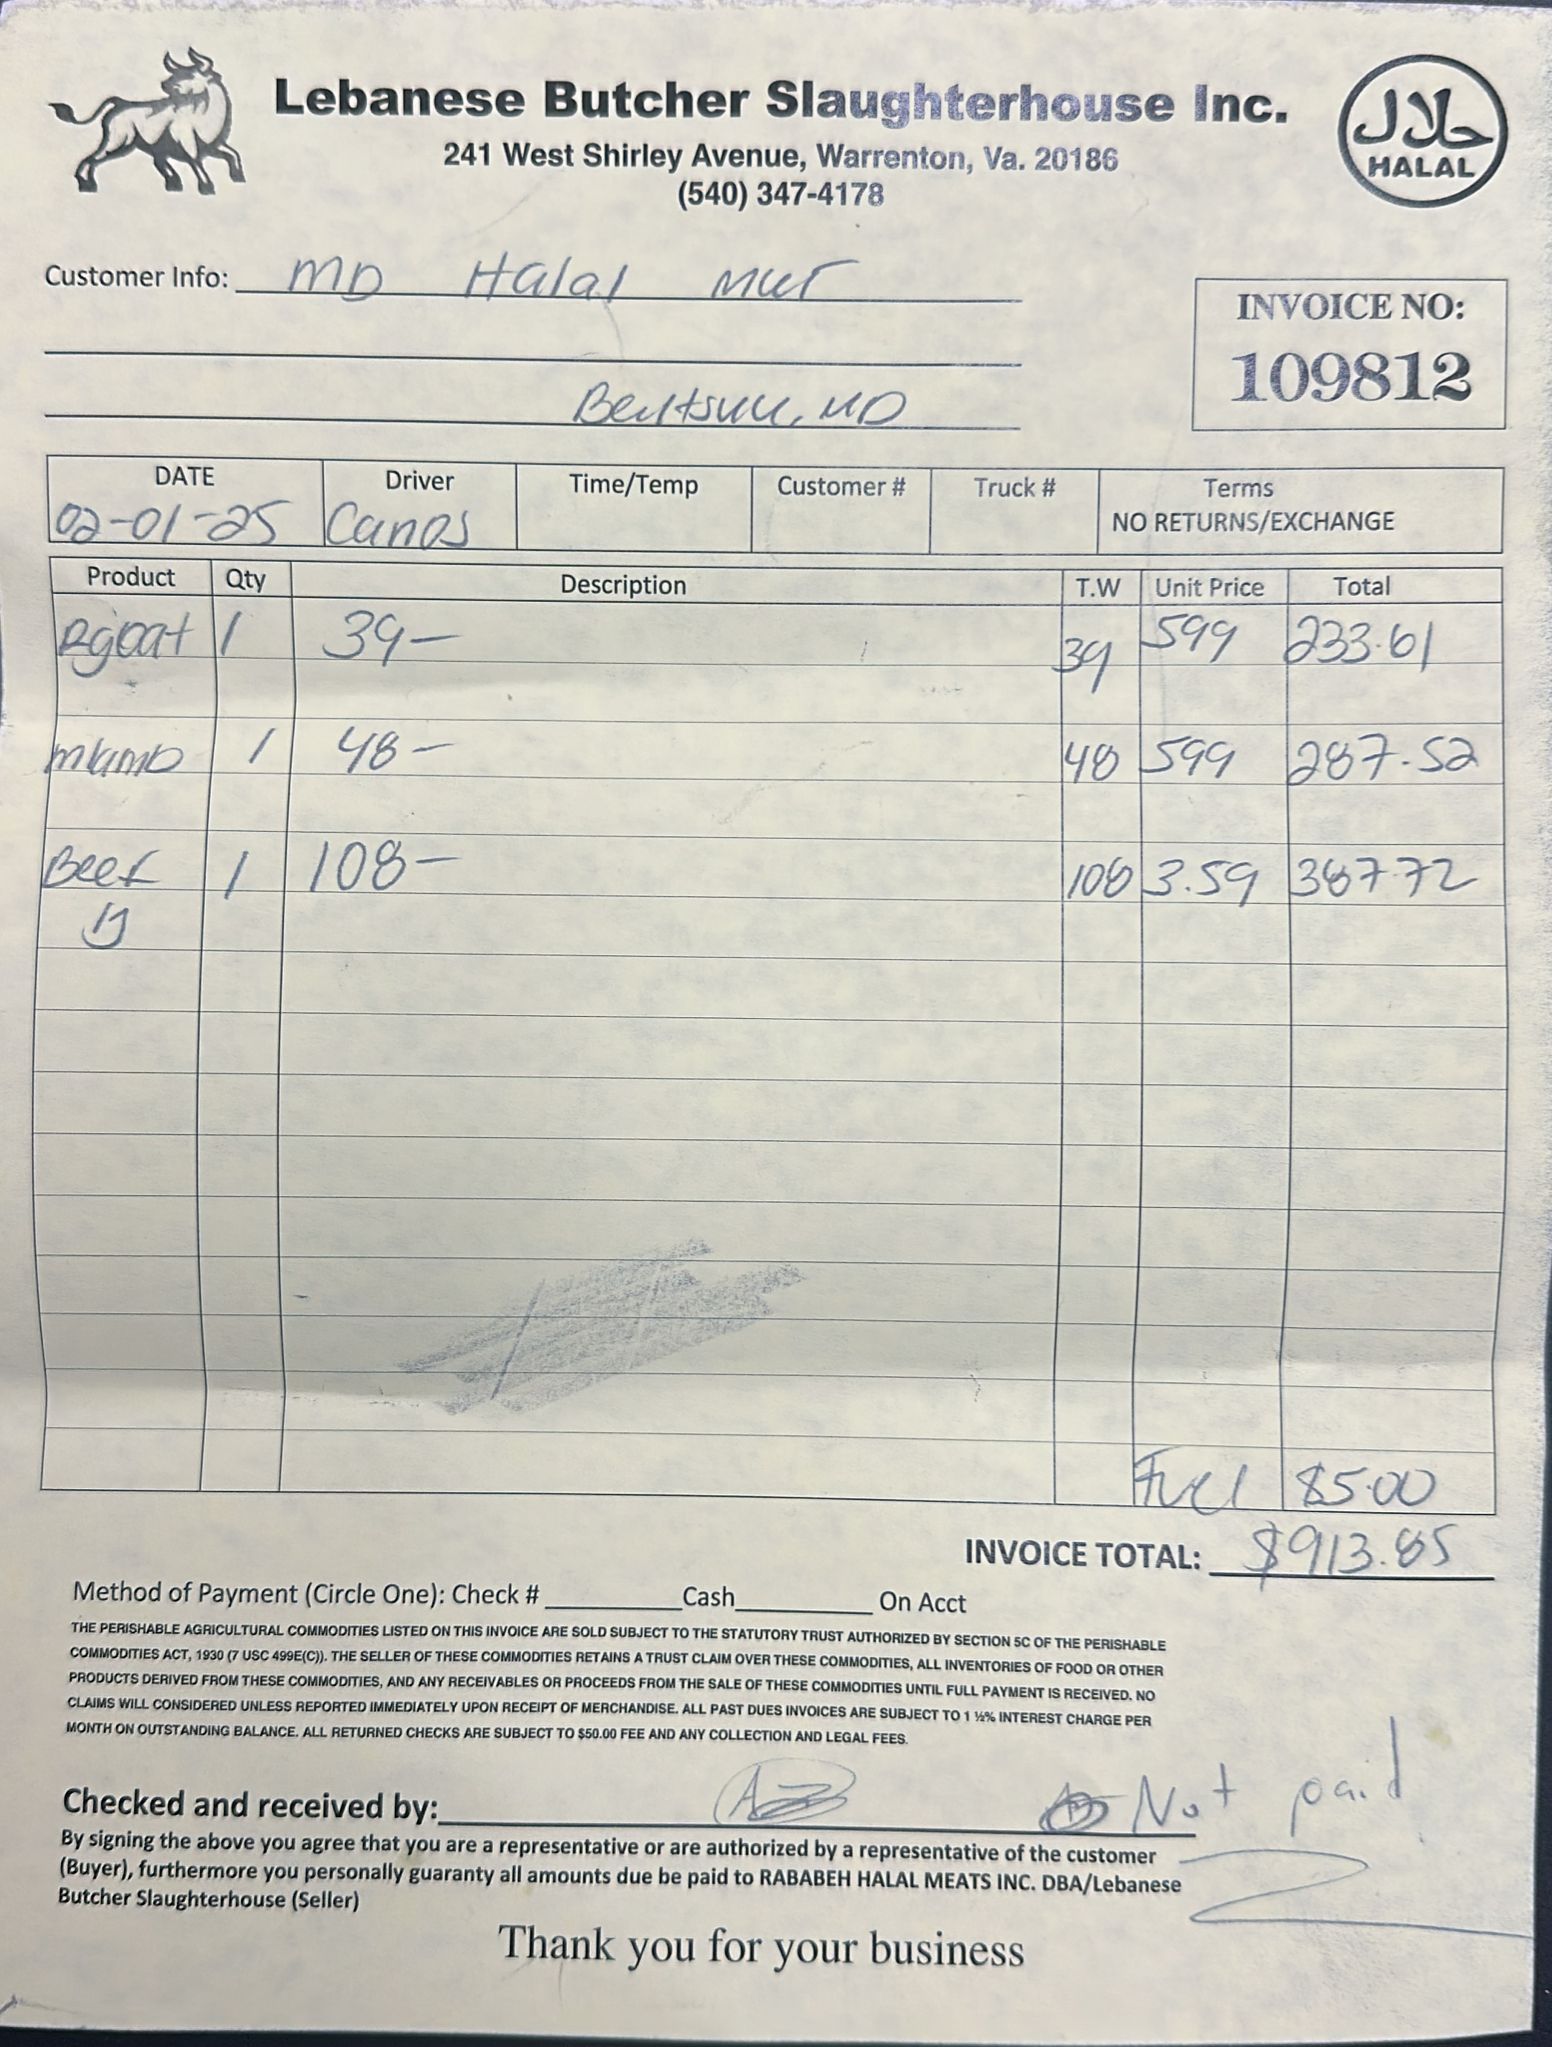 Lebanese Butcher Slaughterhouse Inc.
241 West Shirley Avenue, Warrenton, Va. 20186
(540) 347-4178
حلال
HALAL
Customer Info: MD Halal
INVOICE NO:
109812
MD
DATE Driver Time/Temp Customer # Truck # Terms
02-01-25 NO RETURNS/EXCHANGE
Product Qty Description T.W Unit Price Total
Rgoat 1 39- 39 599 233.61
1 48- 48 599 287.52
Beef 1 108- 108 3.59 387.72
Fuel $5.00
INVOICE TOTAL: $913.85
Method of Payment (Circle One): Check # Cash On Acct
THE PERISHABLE AGRICULTURAL COMMODITIES LISTED ON THIS INVOICE ARE SOLD SUBJECT TO THE STATUTORY TRUST AUTHORIZED BY SECTION 5C OF THE PERISHABLE
COMMODITIES ACT, 1930 (7 USC 499E(C)). THE SELLER OF THESE COMMODITIES RETAINS A TRUST CLAIM OVER THESE COMMODITIES, ALL INVENTORIES OF FOOD OR OTHER
PRODUCTS DERIVED FROM THESE COMMODITIES, AND ANY RECEIVABLES OR PROCEEDS FROM THE SALE OF THESE COMMODITIES UNTIL FULL PAYMENT IS RECEIVED. NO
CLAIMS WILL CONSIDERED UNLESS REPORTED IMMEDIATELY UPON RECEIPT OF MERCHANDISE. ALL PAST DUES INVOICES ARE SUBJECT TO 1 ½% INTEREST CHARGE PER
MONTH ON OUTSTANDING BALANCE. ALL RETURNED CHECKS ARE SUBJECT TO $50.00 FEE AND ANY COLLECTION AND LEGAL FEES.
Checked and received by: Not paid
By signing the above you agree that you are a representative or are authorized by a representative of the customer
(Buyer), furthermore you personally guaranty all amounts due be paid to RABABEH HALAL MEATS INC. DBA/Lebanese
Butcher Slaughterhouse (Seller)
Thank you for your business